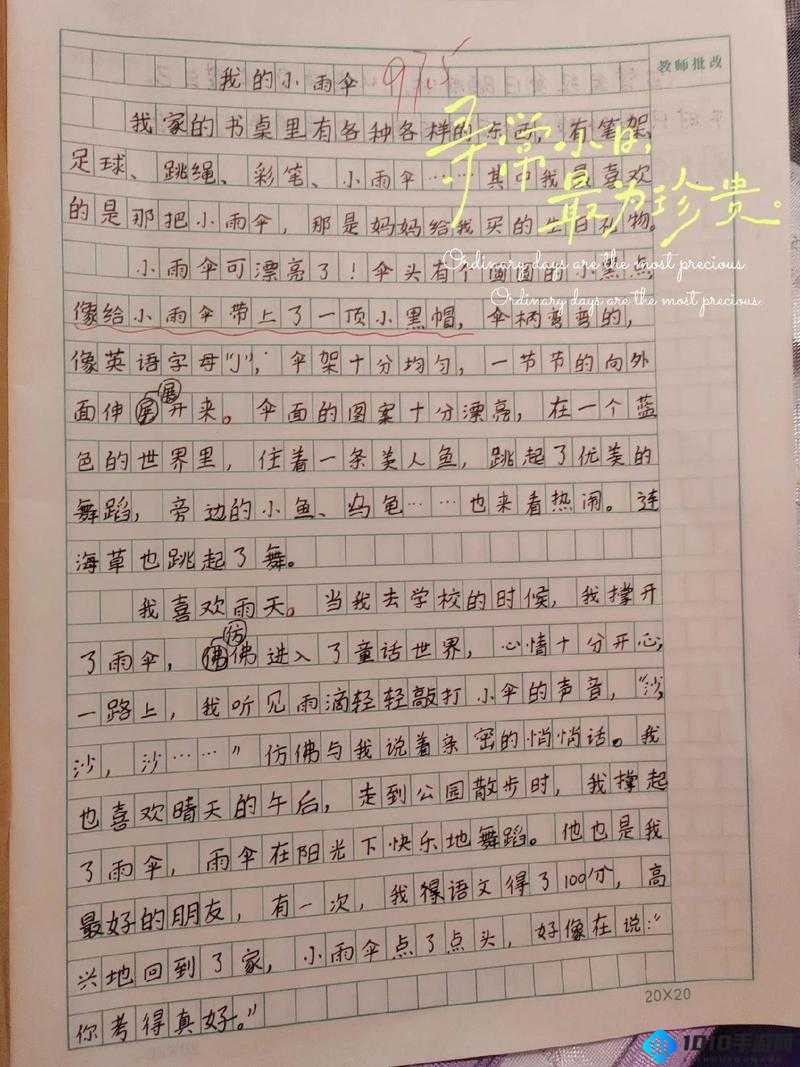 我的小雨伞 97.5
教师批改
我家的书桌里有各种各样的东西，有笔架、
足球、跳绳、彩笔、小雨伞……其中我最喜欢
的是那把小雨伞，那是妈妈给我买的生日礼物。
小雨伞可漂亮了！伞头有个圆圆的小黑点
像给小雨伞带上了一顶小黑帽，伞柄弯弯的，
像英语字母"J"，伞架十分均匀，一节节的向外
面伸展开来。伞面的图案十分漂亮，在一个蓝
色的世界里，住着一条美人鱼，跳起了优美的
舞蹈，旁边的小鱼、乌龟……也来看热闹。连
海草也跳起了舞。
我喜欢雨天。当我去学校的时候，我撑开
了雨伞，仿佛进入了童话世界，心情十分开心，
一路上，我听见雨滴轻轻敲打小伞的声音，"沙，
沙，沙……"仿佛与我说着亲密的悄悄话。我
也喜欢晴天的午后，走到公园散步时，我撑起
了雨伞，雨伞在阳光下快乐地舞蹈。他也是我
最好的朋友，有一次，我得语文得了100分，高
兴地回到了家，小雨伞点了点头，好像在说："
你考得真好。"
20X20
寻常小日，
最为珍贵。
Ordinary days are the most precious
Ordinary days are the most precious
1010手游网